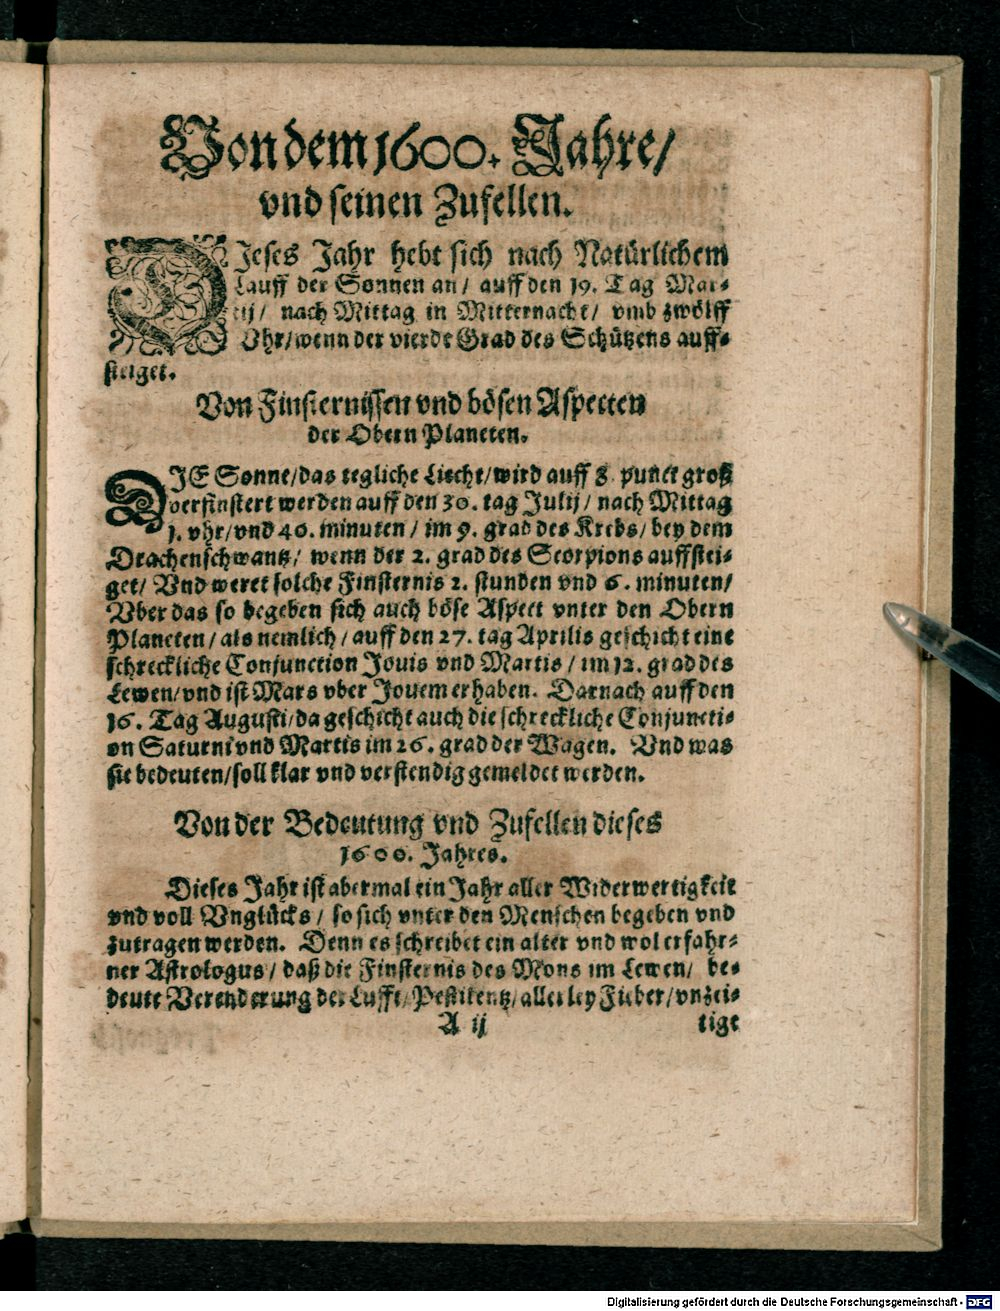 Von dem 1600. Jahre/
vnd seinen Zufellen.
DIeses Jahr hebt sich nach Natürlichem
Lauff der Sonnen an/ auff den 19. Tag Mar-
tij/ nach Mittag in Mitternacht/ vmb zwölff
Vhr/wenn der vierde Grad des Schützens auff-
steiget.
Von Finsternissen vnd bösen Aspecten
der Obern Planeten.
DIE Sonne/das tegliche Liecht/wird auff 8. punct groß
verfinstert werden auff den 30. tag Julij/ nach Mittag
1. vhr/vnd 40. minuten/ im 9. grad des Krebs/ bey dem
Drachenschwantz/ wenn der 2. grad des Scorpions auffstei-
get/ Vnd weret solche Finsternis 2. stunden vnd 6. minuten/
Vber das so begeben sich auch böse Aspect vnter den Obern
Planeten/als nemlich/auff den 27. tag Aprilis geschicht eine
schreckliche Conjunction Jouis vnd Martis/ im 12. grad des
Lewen/vnd ist Mars vber Jouem erhaben. Darnach auff den
16. Tag Augusti/da geschicht auch die schreckliche Conjuncti-
on Saturni vnd Martis im 26. grad der Wagen. Vnd was
sie bedeuten/soll klar vnd verstendig gemeldet werden.
Von der Bedeutung vnd Zufellen dieses
1600. Jahres.
Dieses Jahr ist abermal ein Jahr aller Widerwertigkeit
vnd voll Vnglücks/ so sich vnter den Menschen begeben vnd
zutragen werden. Denn es schreibet ein alter vnd wol erfahr-
ner Astrologus/ daß die Finsternis des Mons im Lewen/ be-
deute Verenderung der Lufft/Pestilentz/allerley Fieber/vnzei-
A ij
tige
Digitalisierung gefördert durch die Deutsche Forschungsgemeinschaft - DFG